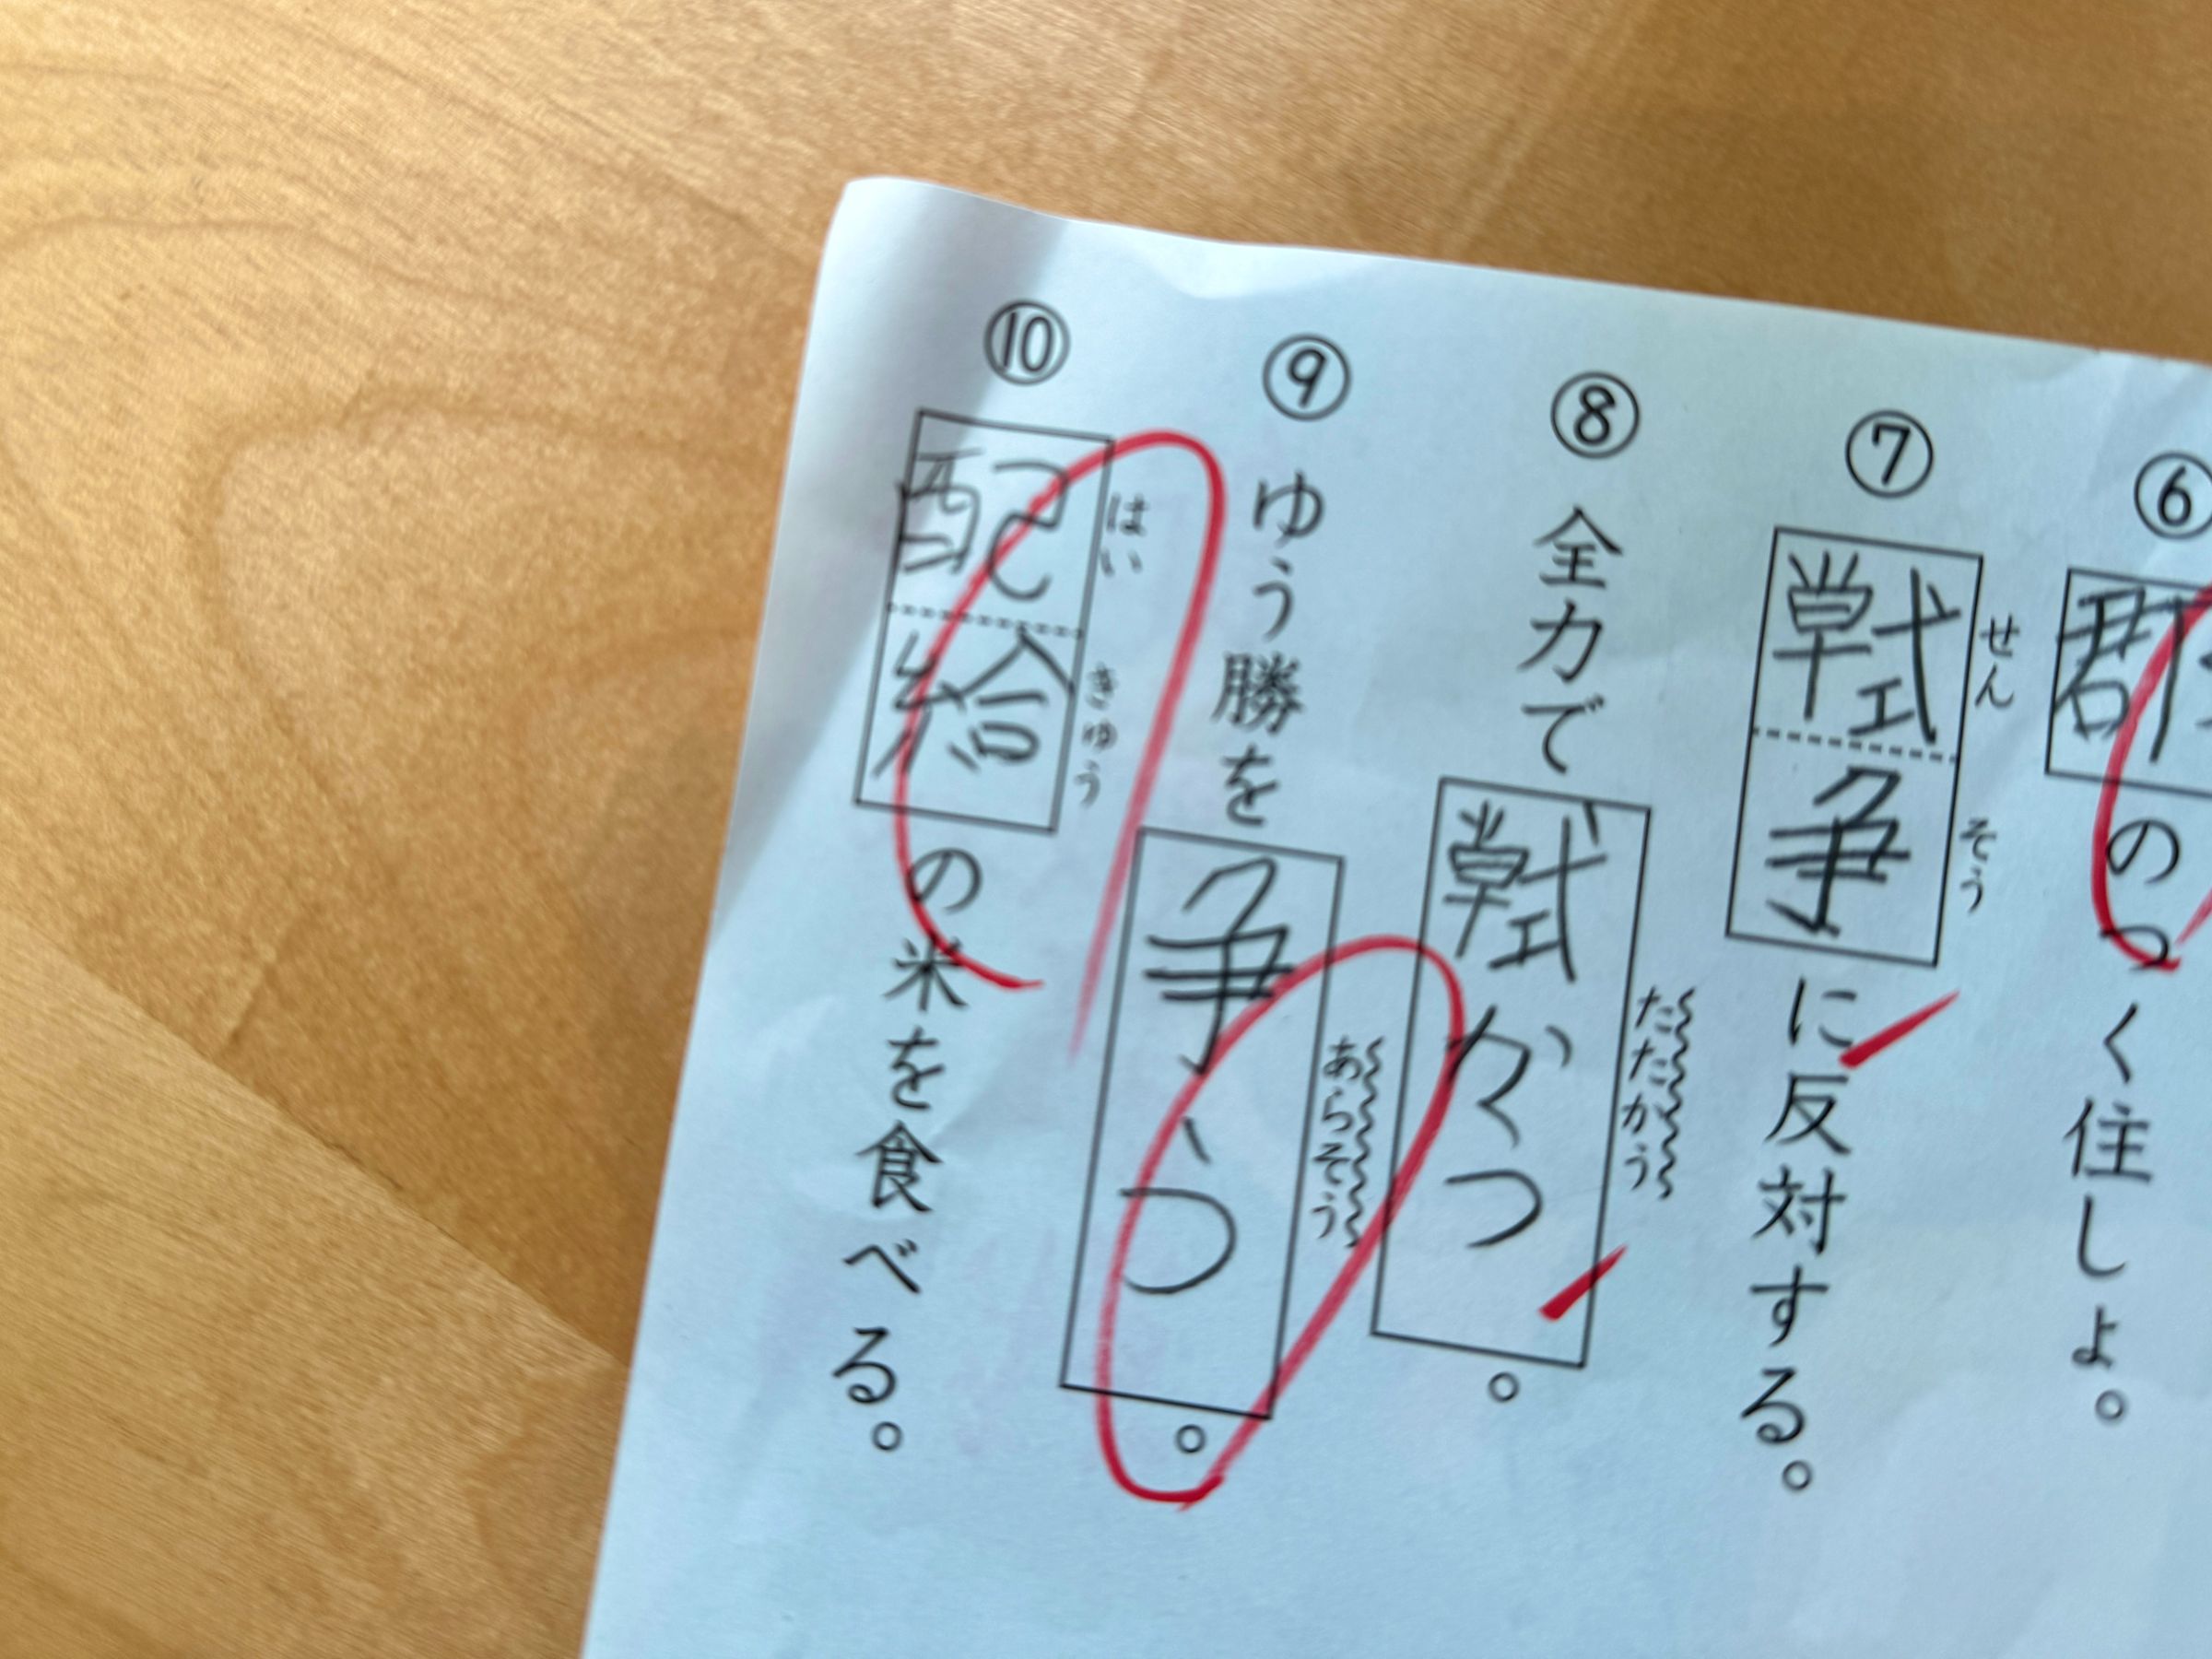 ⑥ 群のつく住しょ。
⑦ 戦争に反対する。
せんそう
⑧ 全力で戦かう。
たたかう
⑨ ゆう勝を争う。
あらそう
⑩ 配給の米を食べる。
はいきゅう